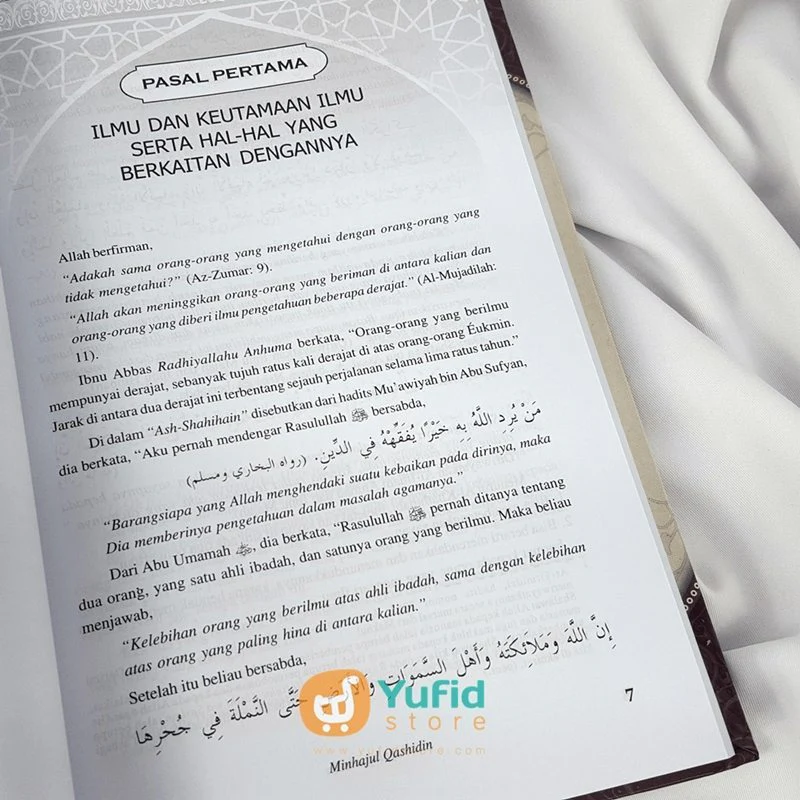 PASAL PERTAMA
ILMU DAN KEUTAMAAN ILMU
SERTA HAL-HAL YANG
BERKAITAN DENGANNYA
Allah berfirman,
“Adakah sama orang-orang yang mengetahui dengan orang-orang yang
tidak mengetahui?” (Az-Zumar: 9).
“Allah akan meninggikan orang-orang yang beriman di antara kalian dan
orang-orang yang diberi ilmu pengetahuan beberapa derajat.” (Al-Mujadilah:
11).
Ibnu Abbas Radhiyallahu Anhuma berkata, “Orang-orang yang berilmu
mempunyai derajat, sebanyak tujuh ratus kali derajat di atas orang-orang Éukmin.
Jarak di antara dua derajat ini terbentang sejauh perjalanan selama lima ratus tahun.”
Di dalam “Ash-Shahihain” disebutkan dari hadits Mu’awiyah bin Abu Sufyan,
dia berkata, “Aku pernah mendengar Rasulullah ﷺ bersabda,
مَنْ يُرِدِ اللَّهُ بِهِ خَيْرًا يُفَقِّهْهُ فِي الدِّينِ. (رواه البخاري ومسلم)
“Barangsiapa yang Allah menghendaki suatu kebaikan pada dirinya, maka
Dia memberinya pengetahuan dalam masalah agamanya.”
Dari Abu Umamah, dia berkata, “Rasulullah ﷺ pernah ditanya tentang
dua orang, yang satu ahli ibadah, dan satunya orang yang berilmu. Maka beliau
menjawab,
“Kelebihan orang yang berilmu atas ahli ibadah, sama dengan kelebihan
atas orang yang paling hina di antara kalian.”
Setelah itu beliau bersabda,
إِنَّ اللَّهَ وَمَلَائِكَتَهُ وَأَهْلَ السَّمَوَاتِ وَالْأَرْضِ حَتَّى النَّمْلَةَ فِي جُحْرِهَا
Yufid
store
Minhajul Qashidin
7